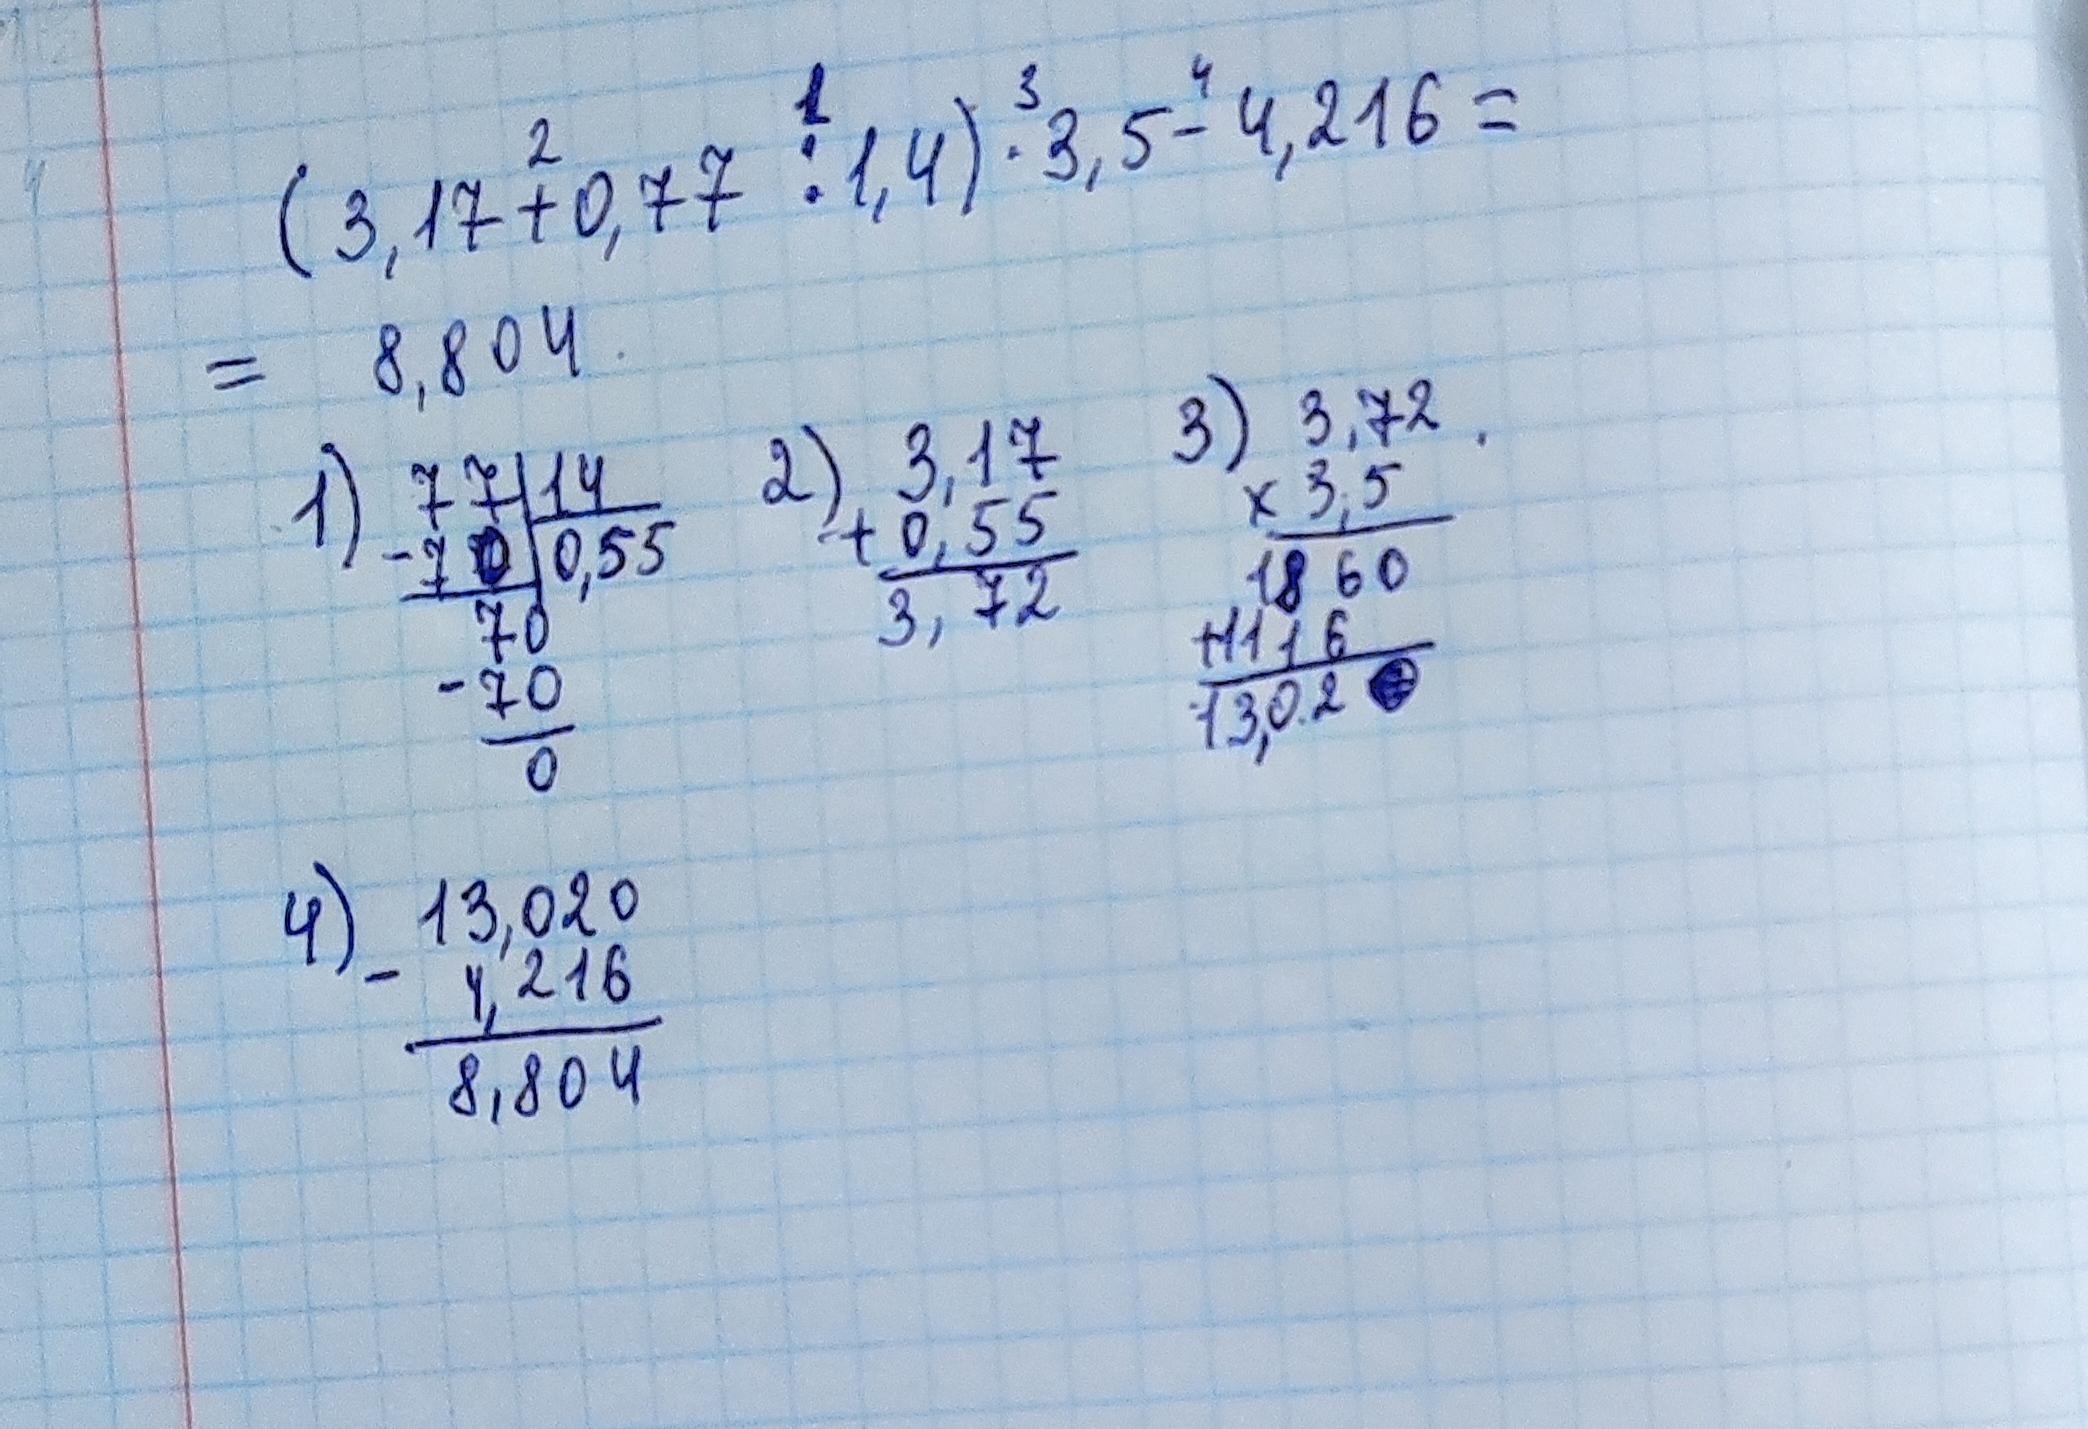 (3,17+0,77:1,4)·3,5-4,216=
2 1 3 4
= 8,804.
1) 77 14
-70 0,55
70
-70
0
2) 3,17
+0,55
3,72
3) 3,72.
x 3,5
1860
+1116
13,02
4) 13,020
- 4,216
8,804